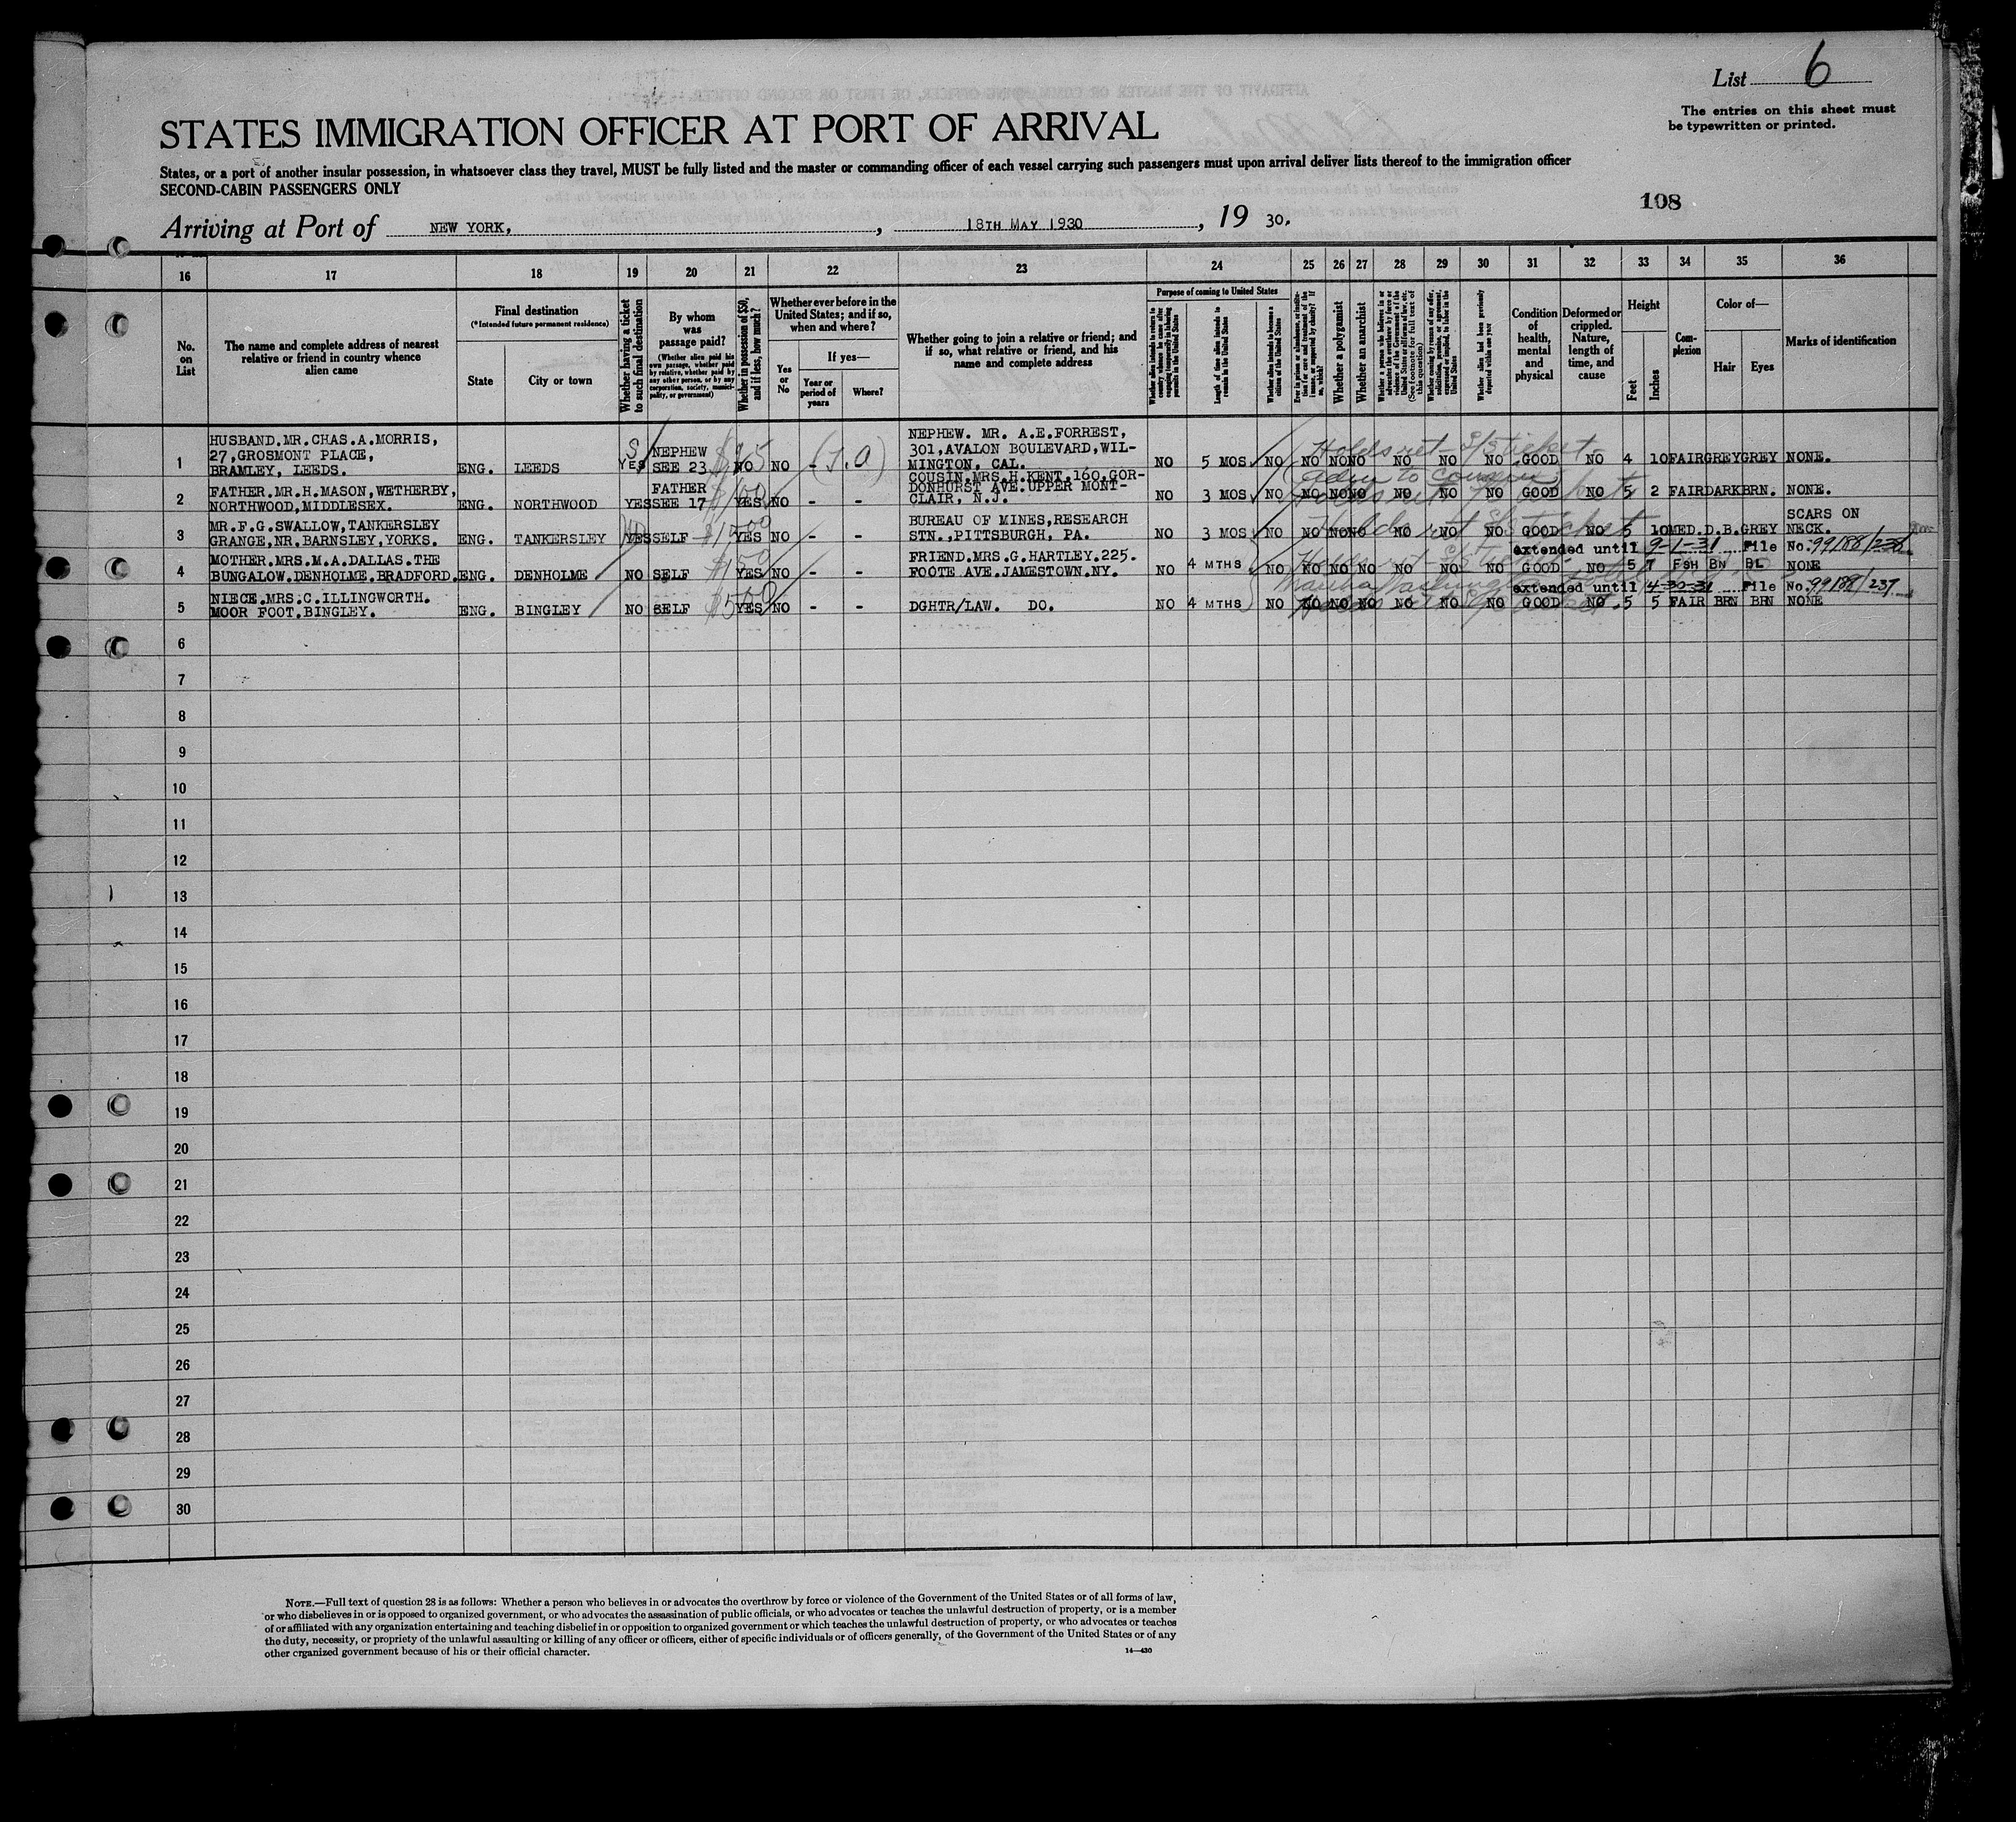 List 6
The entries on this sheet must
be typewritten or printed.
STATES IMMIGRATION OFFICER AT PORT OF ARRIVAL
States, or a port of another insular possession, in whatsoever class they travel, MUST be fully listed and the master or commanding officer of each vessel carrying such passengers must upon arrival deliver lists thereof to the immigration officer
SECOND-CABIN PASSENGERS ONLY
108
Arriving at Port of NEW YORK, , 18TH MAY 1930 , 19 30.
16 17 18 19 20 21 22 23 24 25 26 27 28 29 30 31 32 33 34 35 36
No. on List
The name and complete address of nearest relative or friend in country whence alien came
Final destination
(*Intended future permanent residence)
State
City or town
Whether having a ticket to such final destination
By whom was passage paid?
(Whether alien paid his own passage, whether paid by relative, whether paid by any other person, or by any corporation, society, municipality, or government)
Whether in possession of $50, and if less, how much?
Whether ever before in the United States; and if so, when and where?
Yes or No
If yes—
Year or period of years
Where?
Whether going to join a relative or friend; and if so, what relative or friend, and his name and complete address
Purpose of coming to United States
Length of time alien intends to remain in the United States
Whether alien intends to become a citizen of the United States
Whether a polygamist
Whether an anarchist
Whether alien had been previously deported within one year
Condition of health, mental and physical
Deformed or crippled. Nature, length of time, and cause
Height
Feet
Inches
Complexion
Color of—
Hair
Eyes
Marks of identification
1 HUSBAND.MR.CHAS.A.MORRIS,
27,GROSMONT PLACE,
BRAMLEY, LEEDS. ENG. LEEDS YES NEPHEW SEE 23 NO NO - NEPHEW. MR. A.E.FORREST,
301,AVALON BOULEVARD,WIL-
MINGTON, CAL. NO 5 MOS NO NO NO NO NO NO NO GOOD NO 4 10 FAIR GREY GREY NONE.
Holds ret S/S ticket
2 FATHER.MR.H.MASON,WETHERBY,
NORTHWOOD,MIDDLESEX. ENG. NORTHWOOD YES FATHER SEE 17 $100 YES NO - - COUSIN,MRS.H.KENT,160,GOR-
DONHURST AVE.UPPER MONT-
CLAIR, N.J. NO 3 MOS NO NO NO NO NO NO NO GOOD NO 5 2 FAIR DARK BRN. NONE.
3 MR.F.G.SWALLOW,TANKERSLEY
GRANGE,NR.BARNSLEY,YORKS. ENG. TANKERSLEY YES SELF YES NO - - BUREAU OF MINES,RESEARCH
STN.,PITTSBURGH, PA. NO 3 MOS NO NO NO NO NO NO NO GOOD NO 5 10 MED. D.B. GREY SCARS ON
NECK.
extended until 9-1-31 File No. 99188/238
4 MOTHER.MRS.M.A.DALLAS.THE
BUNGALOW.DENHOLME.BRADFORD. ENG. DENHOLME NO SELF YES NO - - FRIEND,MRS.G.HARTLEY.225.
FOOTE AVE.JAMESTOWN.NY. NO 4 MTHS NO NO NO NO NO NO NO GOOD NO 5 7 FSH BN BL NONE
extended until 4-30-31 File No. 99189/237
5 NIECE.MRS.C.ILLINGWORTH.
MOOR FOOT.BINGLEY. ENG. BINGLEY NO SELF $500 YES NO - - DGHTR/LAW. DO. NO 4 MTHS NO NO NO NO NO NO NO GOOD NO 5 5 FAIR BRN BRN NONE
6
7
8
9
10
11
12
13
14
15
16
17
18
19
20
21
22
23
24
25
26
27
28
29
30
NOTE.—Full text of question 28 is as follows: Whether a person who believes in or advocates the overthrow by force or violence of the Government of the United States or of all forms of law,
or who disbelieves in or is opposed to organized government, or who advocates the assassination of public officials, or who advocates or teaches the unlawful destruction of property, or is a member
of or affiliated with any organization entertaining and teaching disbelief in or opposition to organized government or which teaches the unlawful destruction of property, or who advocates or teaches
the duty, necessity, or propriety of the unlawful assaulting or killing of any officer or officers, either of specific individuals or of officers generally, of the Government of the United States or of any
other organized government because of his or their official character.
14—430